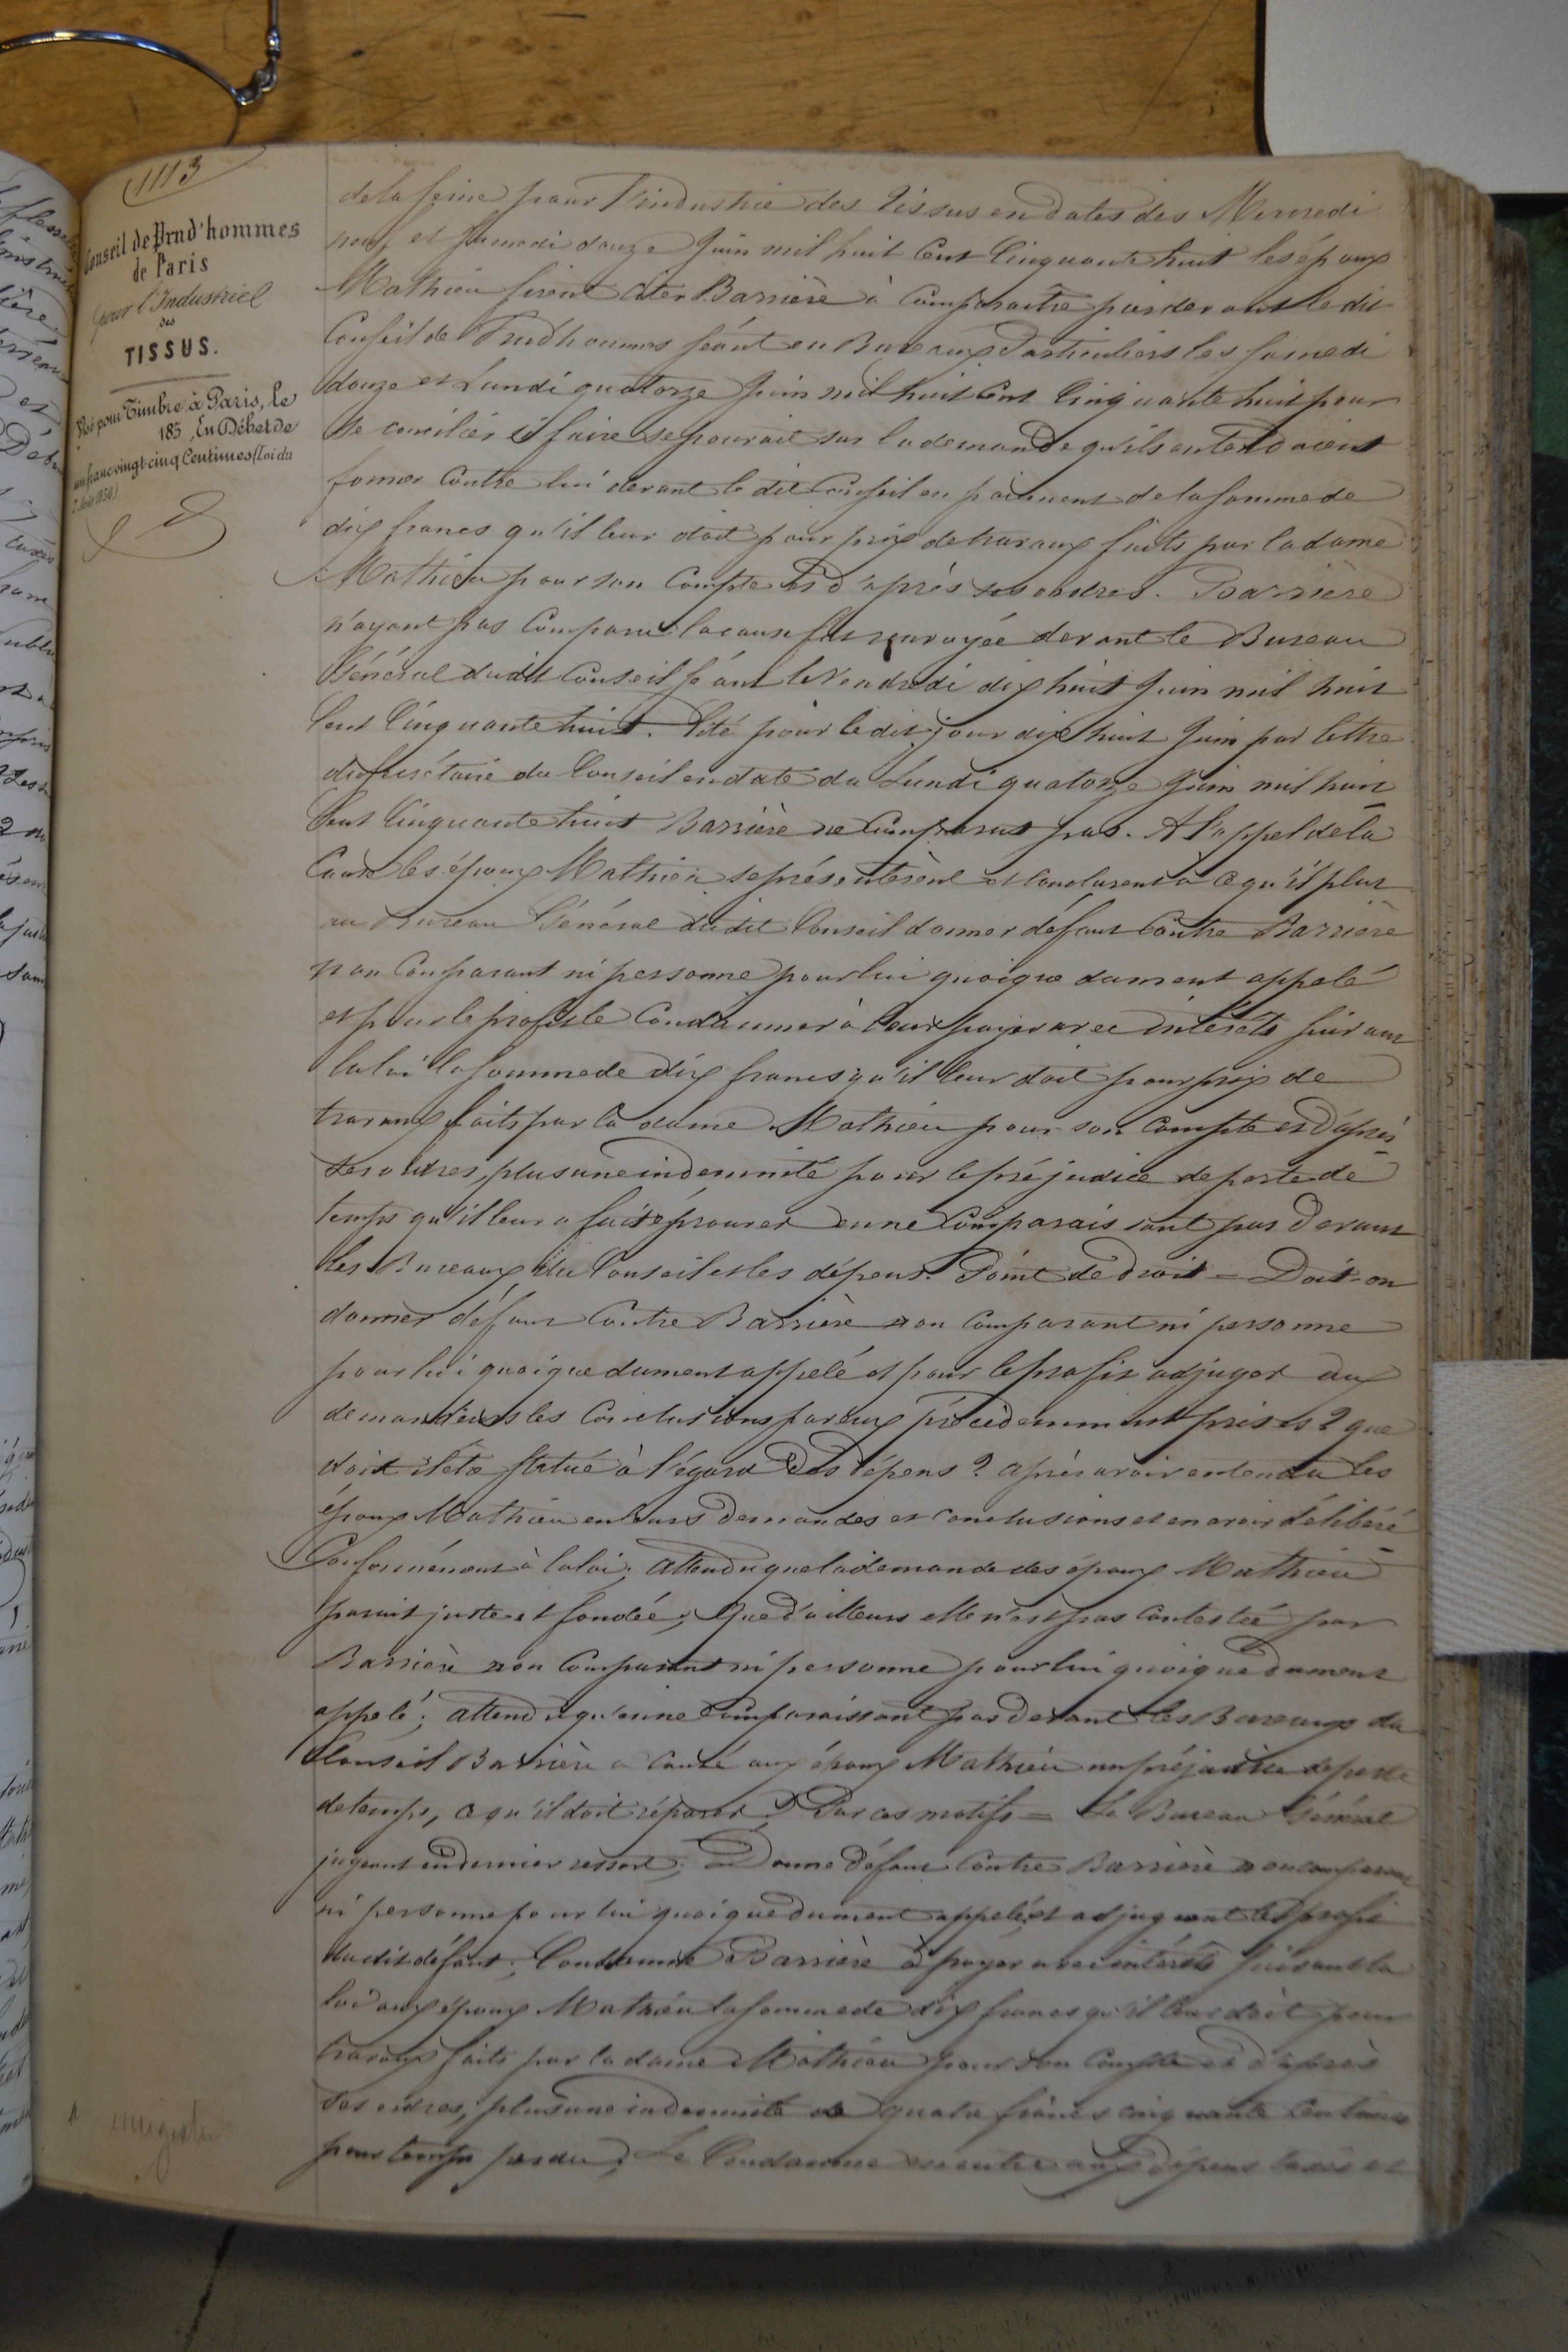 1113
Conseil de Prud'hommes
de Paris
pour l'Industriel
des
TISSUS.
Visé pour Timbre à Paris, le
185 , En Débet de
un franc vingt-cinq Centimes (Loi du
de la Seine pour l'industrie des tissus en dates des Mercredi
neuf et Samedi douze Juin mil huit Cent Cinquante huit les époux
Mathieu firent citer Barrière à Comparaitre par devant le dit
Conseil de Prudhommes séant en Bureaux Particuliers les Samedi
douze et Lundi quatorze Juin mil huit Cent Cinquante huit pour
se concilier si faire se pouvait sur la demande qu'ils entendaient
former Contre lui devant le dit Conseil en paiement de la somme de
dix francs qu'il leur doit pour prix de travaux faits par la dame
Mathieu pour son Compte et d'après ses ordres. Barrière
n'ayant pas Comparu la cause fut renvoyée devant le Bureau
Général dudit Conseil séant le Vendredi dix huit Juin mil huit
Cent Cinquante huit. Cité pour le dit jour dix huit Juin par lettre
du secrétaire du Conseil en date du Lundi quatorze Juin mil huit
Cent Cinquante huit Barrière ne Comparut pas. A l'appel de la
Cause les époux Mathieu se présentèrent et Conclurent à ce qu'il plut
au Bureau Général dudit Conseil donner défaut Contre Barrière
non Comparant ni personne pour lui quoique dument appelé
et pour le profit le Condamner à leur payer avec intérêts suivant
la loi la somme de dix francs qu'il leur doit pour prix de
travaux faits par la dame Mathieu pour son Compte et d'après
ses ordres, plus une indemnité pour le préjudice de perte de
temps qu'il leur a fait éprouver en ne Comparaissant pas devant
les Bureaux du Conseil et les dépens. Point de droit = Doit-on
donner défaut Contre Barrière non Comparant ni personne
pour lui quoique dument appelé et pour le profit adjuger aux
demandeurs les Conclusions par eux précédemment prises ? que
doit-il être statué à l'égard des dépens ? après avoir entendu les
époux Mathieu en leurs demandes et conclusions et en avoir délibéré
Conformément à la loi; attendu que la demande des époux Mathieu
parait juste et fondée; Que d'ailleurs elle n'est pas Contestée par
Barrière non Comparant ni personne pour lui quoique dument
appelé; attendu qu'en ne Comparaissant pas devant les Bureaux du
Conseil Barrière a causé aux époux Mathieu un préjudice de perte
de temps, ce qu'il doit réparer; Par ces motifs = Le Bureau Général
jugeant en dernier ressort; Donne défaut Contre Barrière non comparant
ni personne pour lui quoique dument appelé et adjugeant le profit
dudit défaut; Condamne Barrière à payer avec intérêts suivant la
loi aux époux Mathieu la somme de dix francs qu'il leur doit pour
travaux faits par la dame Mathieu pour son Compte et d'après
ses ordres, plus une indemnité de quatre francs cinquante Centimes
pour temps perdu; Le Condamne en outre aux dépens taxés et